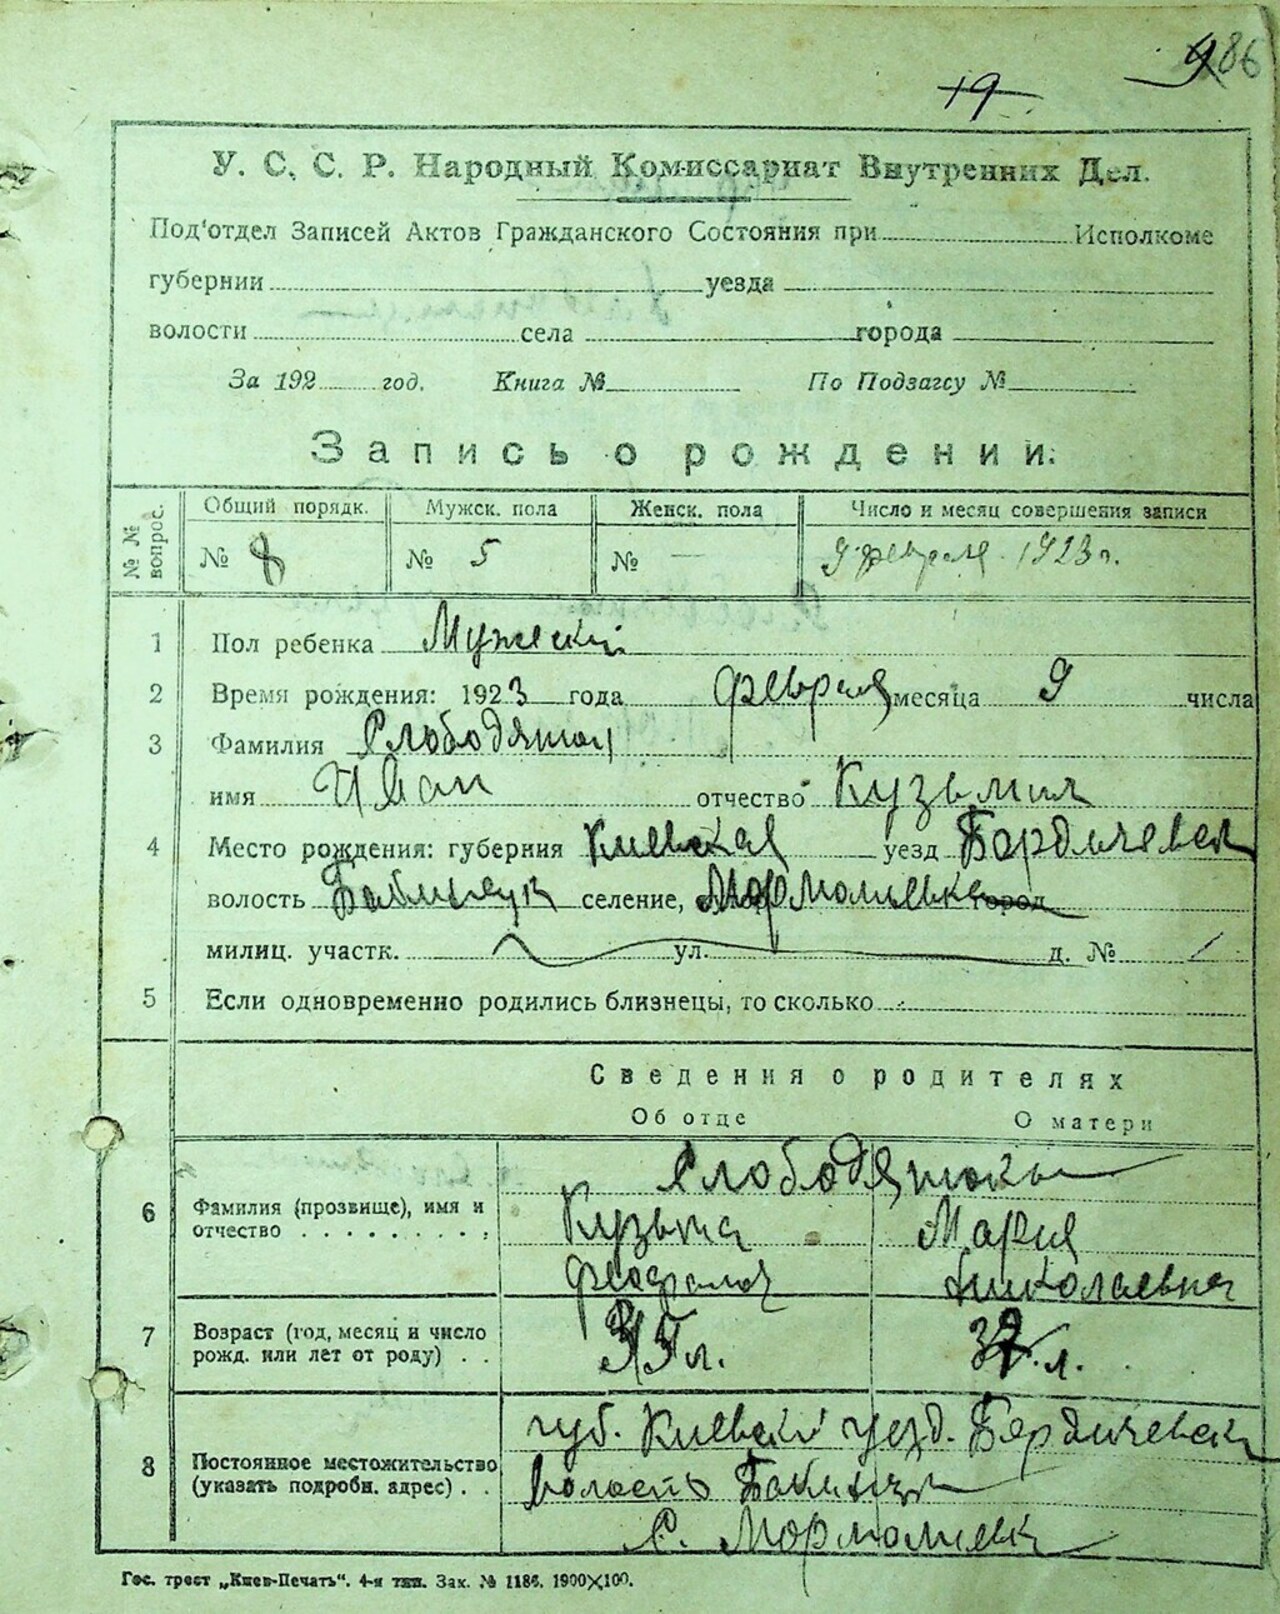 19
9 86
У. С. С. Р. Народный Комиссариат Внутренних Дел.
Под'отдел Записей Актов Гражданского Состояния при Исполкоме
губернии уезда
волости села города
За 192 год. Книга № По Подзагсу №
Запись о рождении.
№ № вопрос. Общий порядк. Мужск. пола Женск. пола Число и месяц совершения записи
№ 8 № 5 № — 9 февраля 1923 г.
1 Пол ребенка Мужский
2 Время рождения: 1923 года февраля месяца 9 числа
3 Фамилия Слободянюк
имя Иван отчество Кузьмич
4 Место рождения: губерния Киевская уезд Бердичевск
волость селение, город
милиц. участк. ул. д. №
5 Если одновременно родились близнецы, то сколько
Сведения о родителях
Об отце О матери
6 Фамилия (прозвище), имя и отчество Слободянюки
Кузьма Мария
Николаевна
7 Возраст (год, месяц и число рожд. или лет от роду) л. л.
8 Постоянное местожительство (указать подробн. адрес) губ. Киевск уезд. Бердичевск
волость
с.
Гос. трест „Киев-Печать". 4-я тип. Зак. № 1186. 1900×100.